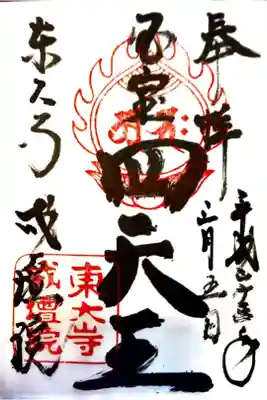 奉拝
平成二十年
月五日
国宝
四天王
東大寺
戒壇院
東大寺
戒壇院